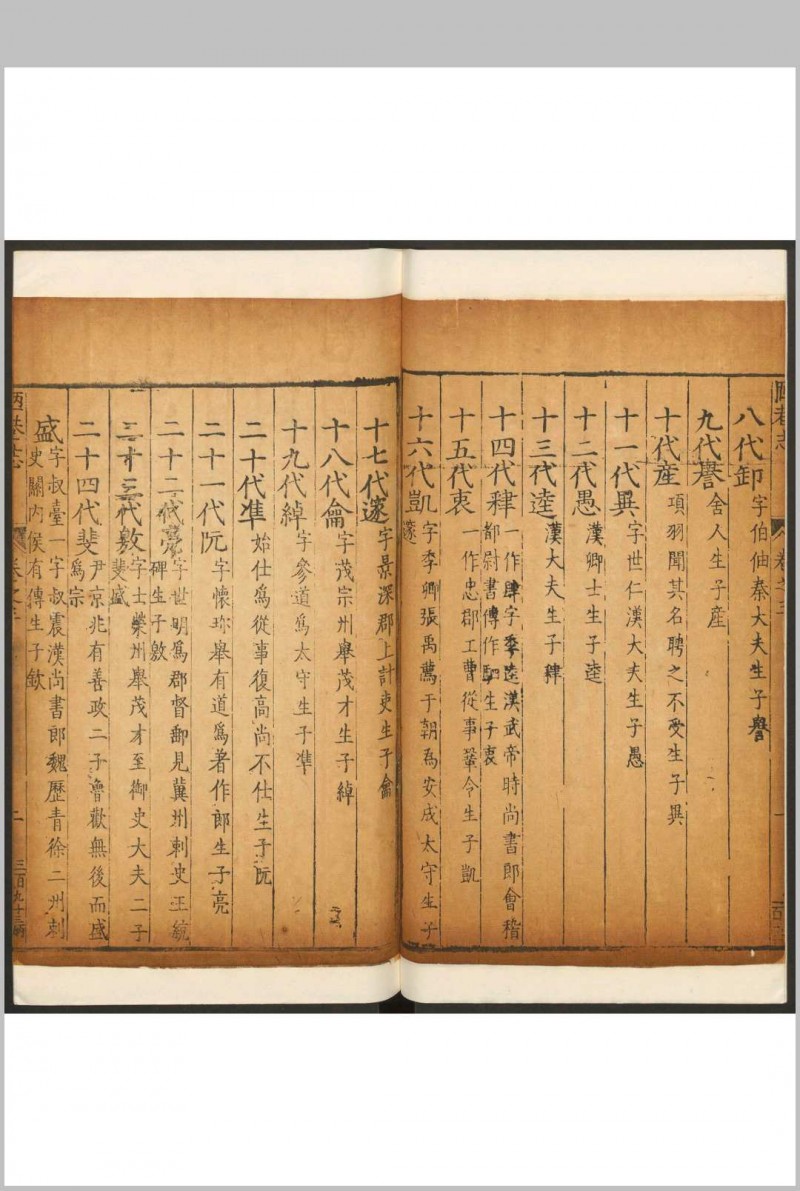 八代卸字伯伷秦大夫生子譽
九代譽舍人生子産
十代産項羽聞其名聘之不受生子㠱
十一代㠱字世仁漢大夫生子愚
十二代愚漢卿士生子逵
十三代逵漢大夫生子肂
十四代肂一作肆字季逵漢武帝時尚書郎會稽
都尉書傳作駟生子衷
十五代衷一作忠郡工曹從事鞏令生子凱
十六代凱字季卿張禹薦于朝為安成太守生子
邃
十七代邃字景深郡上計吏生子龠
十八代龠字茂宗州舉茂才生子綽
十九代綽字參道爲太守生子準
二十代準始仕爲從事復高尚不仕生子阮
二十一代阮字懷珎舉有道爲著作郎生子亮
二十二代亮字世明爲郡督郵見冀州刺史王純
碑生子敫
二十三代敫字士榮州舉茂才至御史大夫二子
斐盛
二十四代斐尹京兆有善政二子魯歡無後而盛
爲宗
盛字叔臺一字叔震漢尚書郎魏歷青徐二州刺
史關內侯有傳生子欽
陋巷志
卷之三
二
三百九十三